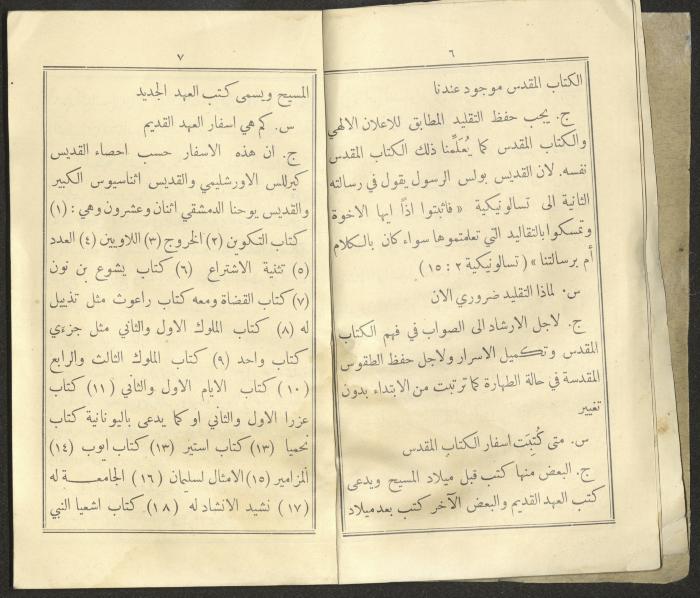 ٦
الكتاب المقدس موجود عندنا
ج. يجب حفظ التقليد المطابق للاعلان الالهي
والكتاب المقدس كما يُعَلِّمنا ذلك الكتاب المقدس
نفسه. لان القديس بولس الرسول يقول في رسالته
الثانية الى تسالونيكية « فاثبتوا اذًا ايها الاخوة
وتمسكوا بالتقاليد التي تعلمتموها سواء كان بالكلام
أم برسالتنا » ( تسالونيكية ٢ : ١٥ )
س. لماذا التقليد ضروري الان
ج. لاجل الارشاد الى الصواب في فهم الكتاب
المقدس وتكميل الاسرار ولاجل حفظ الطقوس
المقدسة في حالة الطهارة كما ترتبت من الابتداء بدون
تغيير
س. متى كُتِبَت اسفار الكتاب المقدس
ج. البعض منها كتب قبل ميلاد المسيح ويدعى
كتب العهد القديم والبعض الآخر كتب بعد ميلاد
٧
المسيح ويسمى كتب العهد الجديد
س. كم هي اسفار العهد القديم
ج. ان هذه الاسفار حسب احصاء القديس
كيرللس الاورشليمي والقديس اثناسيوس الكبير
والقديس يوحنا الدمشقي اثنان وعشرون وهي : (١)
كتاب التكوين (٢) الخروج (٣) اللاويين (٤) العدد
(٥) تثنية الاشتراع (٦) كتاب يشوع بن نون
(٧) كتاب القضاة ومعه كتاب راعوث مثل تذييل
له (٨) كتاب الملوك الاول والثاني مثل جزءي
كتاب واحد (٩) كتاب الملوك الثالث والرابع
(١٠) كتاب الايام الاول والثاني (١١) كتاب
عزرا الاول والثاني او كما يدعى باليونانية كتاب
نحميا (١٣) كتاب استير (١٣) كتاب ايوب (١٤)
المزامير (١٥) الامثال لسليمان (١٦) الجامعة له
(١٧) نشيد الانشاد له (١٨) كتاب اشعيا النبي